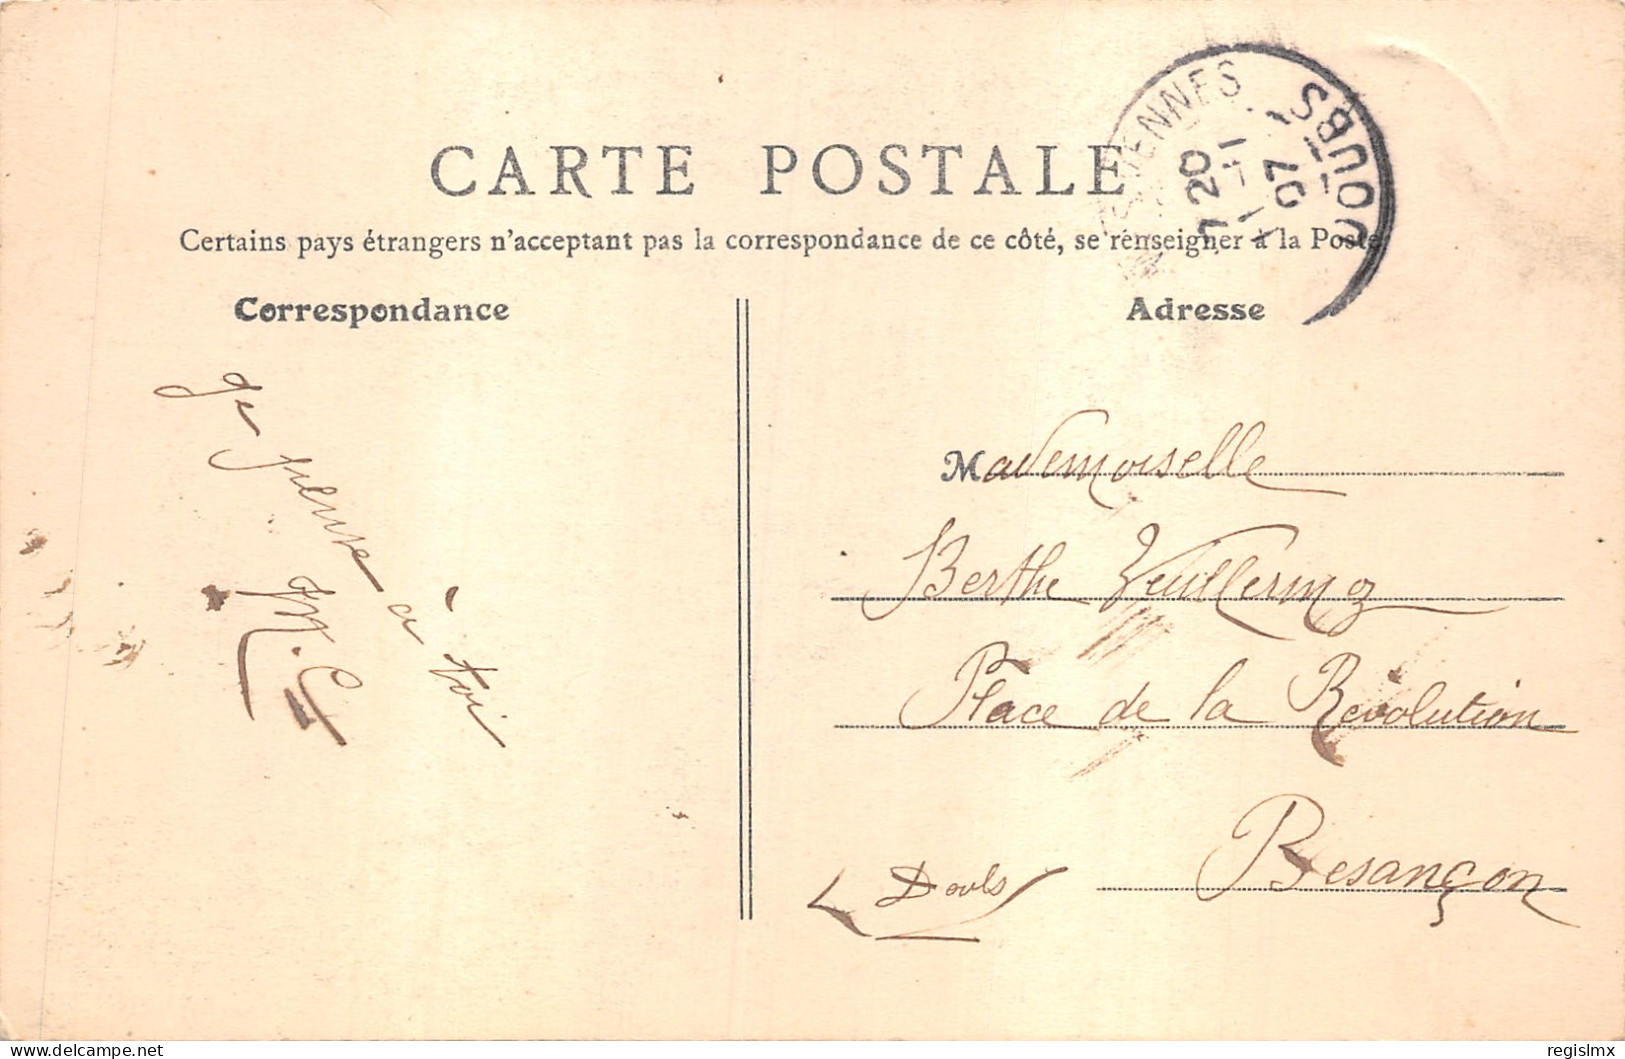 CARTE POSTALE
Certains pays étrangers n'acceptant pas la correspondance de ce côté, se renseigner à la Poste
DOUBS
7 20
07
Correspondance
Je pense à toi
M. C
Adresse
Mademoiselle
Berthe Veuillermoz
Place de la Révolution
Besançon
Doubs
delcampe.net
regislmx